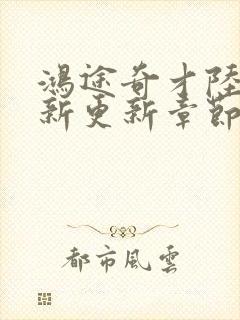 鴻途奇才陸
新更新章節
都市風雲